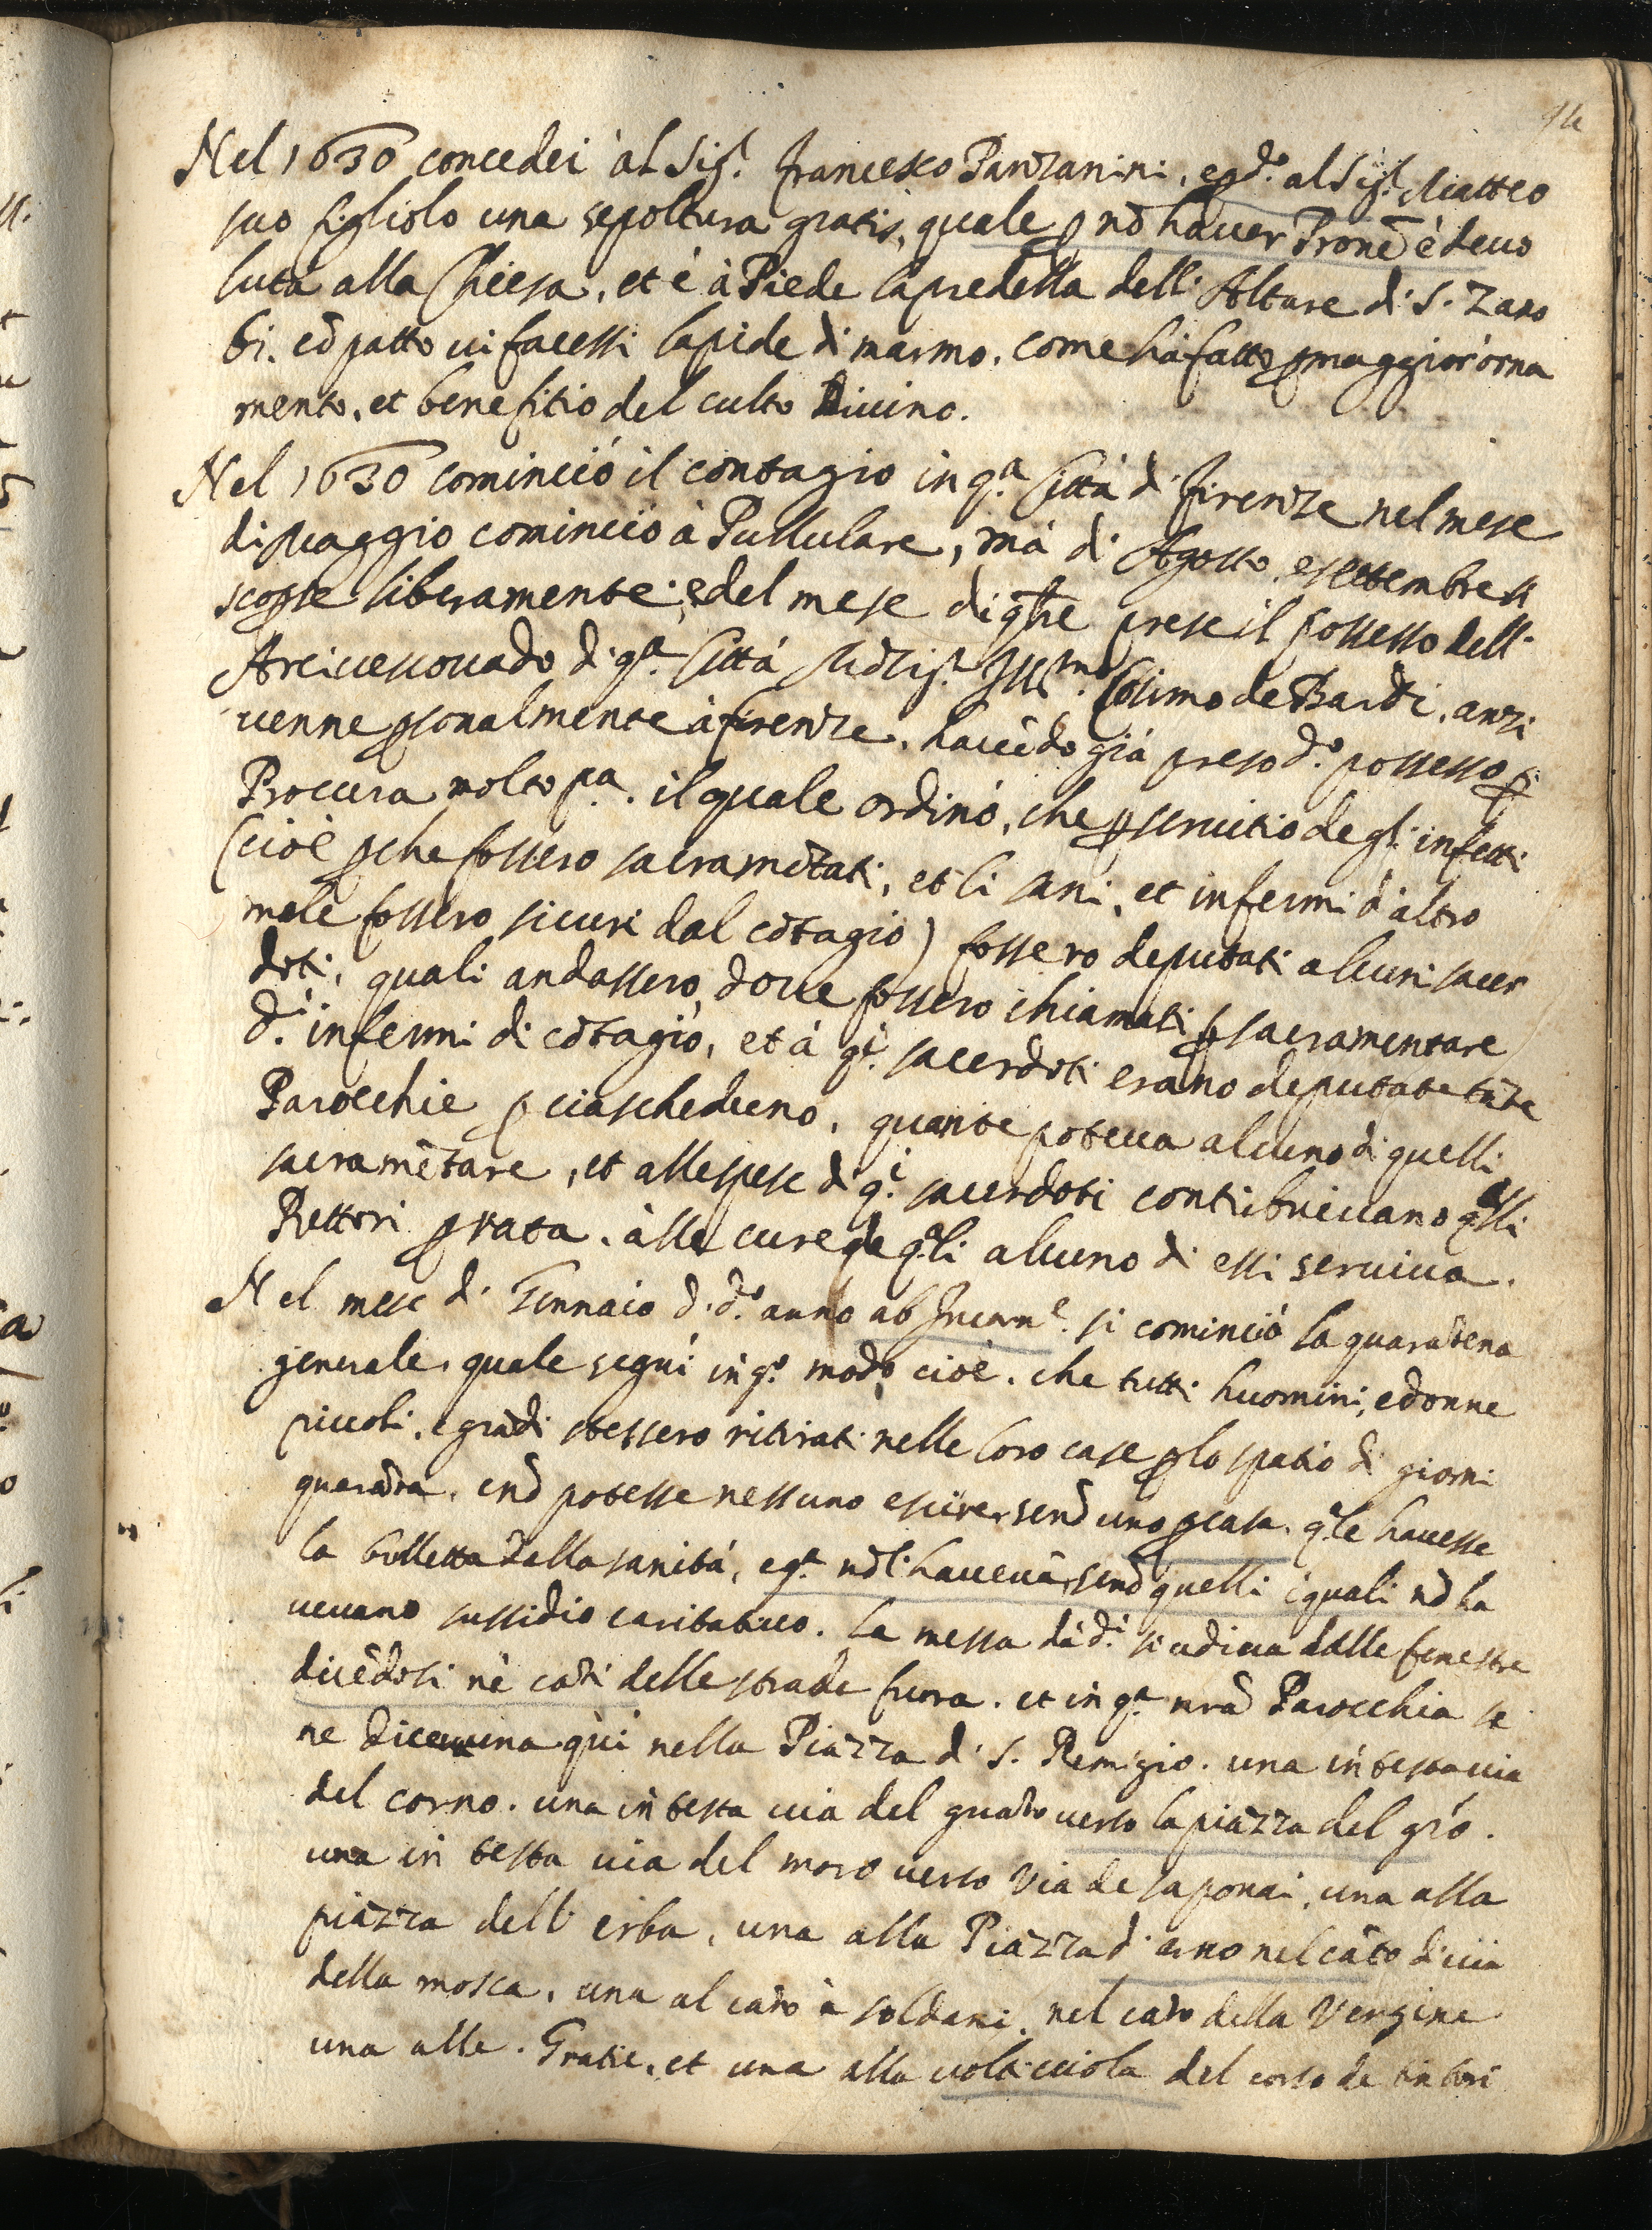 Nel 1630 concedei àl Sig.r francesco Panzanini, e p d.o al Sig.r Matteo
suo figliolo una sepoltura gratis, quale p nō hauer Pronē è deuo
luta alla Chiesa, et è à Piede la predella dell' Altare di S. Zano
bi. cō patto ui facessi lapide di marmo, come hà fatto p maggior orna
mento, et benefitio del culto Diuino.
Nel 1630 cominciò il contagio in q.a Città di firenze nel mese
di Maggio cominciò à Pullulare, mà di Agosto, e settembre si
scoprse liberamente; e del mese di 9bre prese il possesso dell'
Arciuescouado di q.a Città Mōsig.r Ill.mo Cosimo de Bardi, anzi
uenne psonalmente à firenze, hauēdo già preso d.o possesso p
Procura molto p.a. il quale ordinò, che p seruitio degl' infetti
(cioè pche fossero sacramētati, et li sani, et infermi d'altro
male fossero sicuri dal cōtagio) fossero deputati alcuni sacer
doti, quali andassero, doue fossero chiamati p sacramentare
d.i infermi di cōtagio, et à q.i sacerdoti erano deputate tāte
Parocchie p ciascheduno, quante poteua alcuno di quelli
sacramētare, et alle spese di q.i sacerdoti contribuiuano q.lli
Rettori p rata, alle cure de q.li alcuno di essi seruiua.
Nel mese di Gennaio d. d.o anno ab Incarn.e si cominciò la quarātena
generale, quale seguì in q.o modo, cioè, che tutti huomini, e donne
piccoli, e grādi stessero ritirati nelle loro case p lo spatio di giorni
quarāta, e nō potesse nessuno escire, senō uno p casa, q.le hauesse
la bulletta della sanità, e q.a nō l'haueuā, senō quelli i quali nō ha
ueuano sussidio caritatiuo. La messa dà d.i si udiua dalle fenestre
dicēdosi nè cāti delle strade fuora. et in q.a nrā Parocchia se
ne diceua una qui nella Piazza di S. Remigio. una in testa uia
del corno. una in testa uia del guāto uerso la piazza del grō.
una in testa uia del moro uerso Via de saponai, una alla
piazza dell' erba, una alla Piazza d' arno nel cāto di uia
della mosca, una al cāto à soldani, nel cāto della Vergine
una alle. Gratie, et una alla uolticciola del corso de tintori